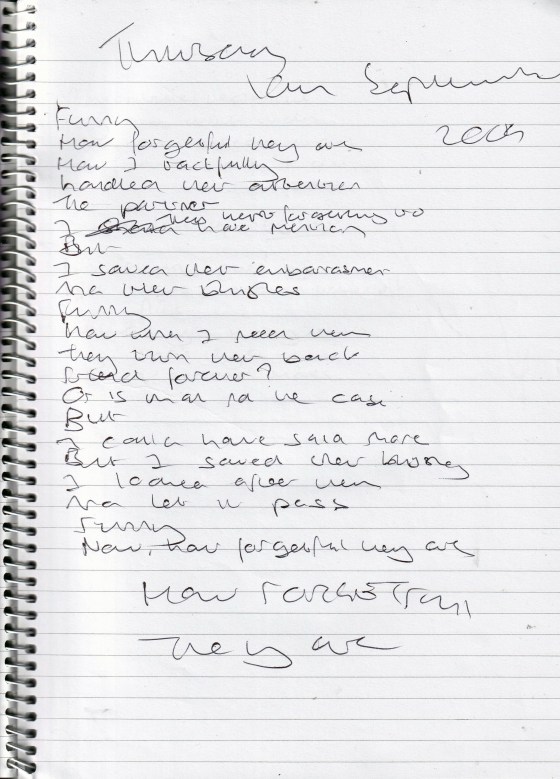 Thursday
September
2009
Funny
How forgetful they are
How I tactfully
handled their
The partner
I have
But
I saved their embarrasment
And their blushes
Funny
how when I need them
they turn their back
friend forever?
Or is that not the case
But
I could have said more
But I saved their blushes
I looked after them
And let it pass
Funny
Now, how forgetful they are
How FORGETFUL
They are